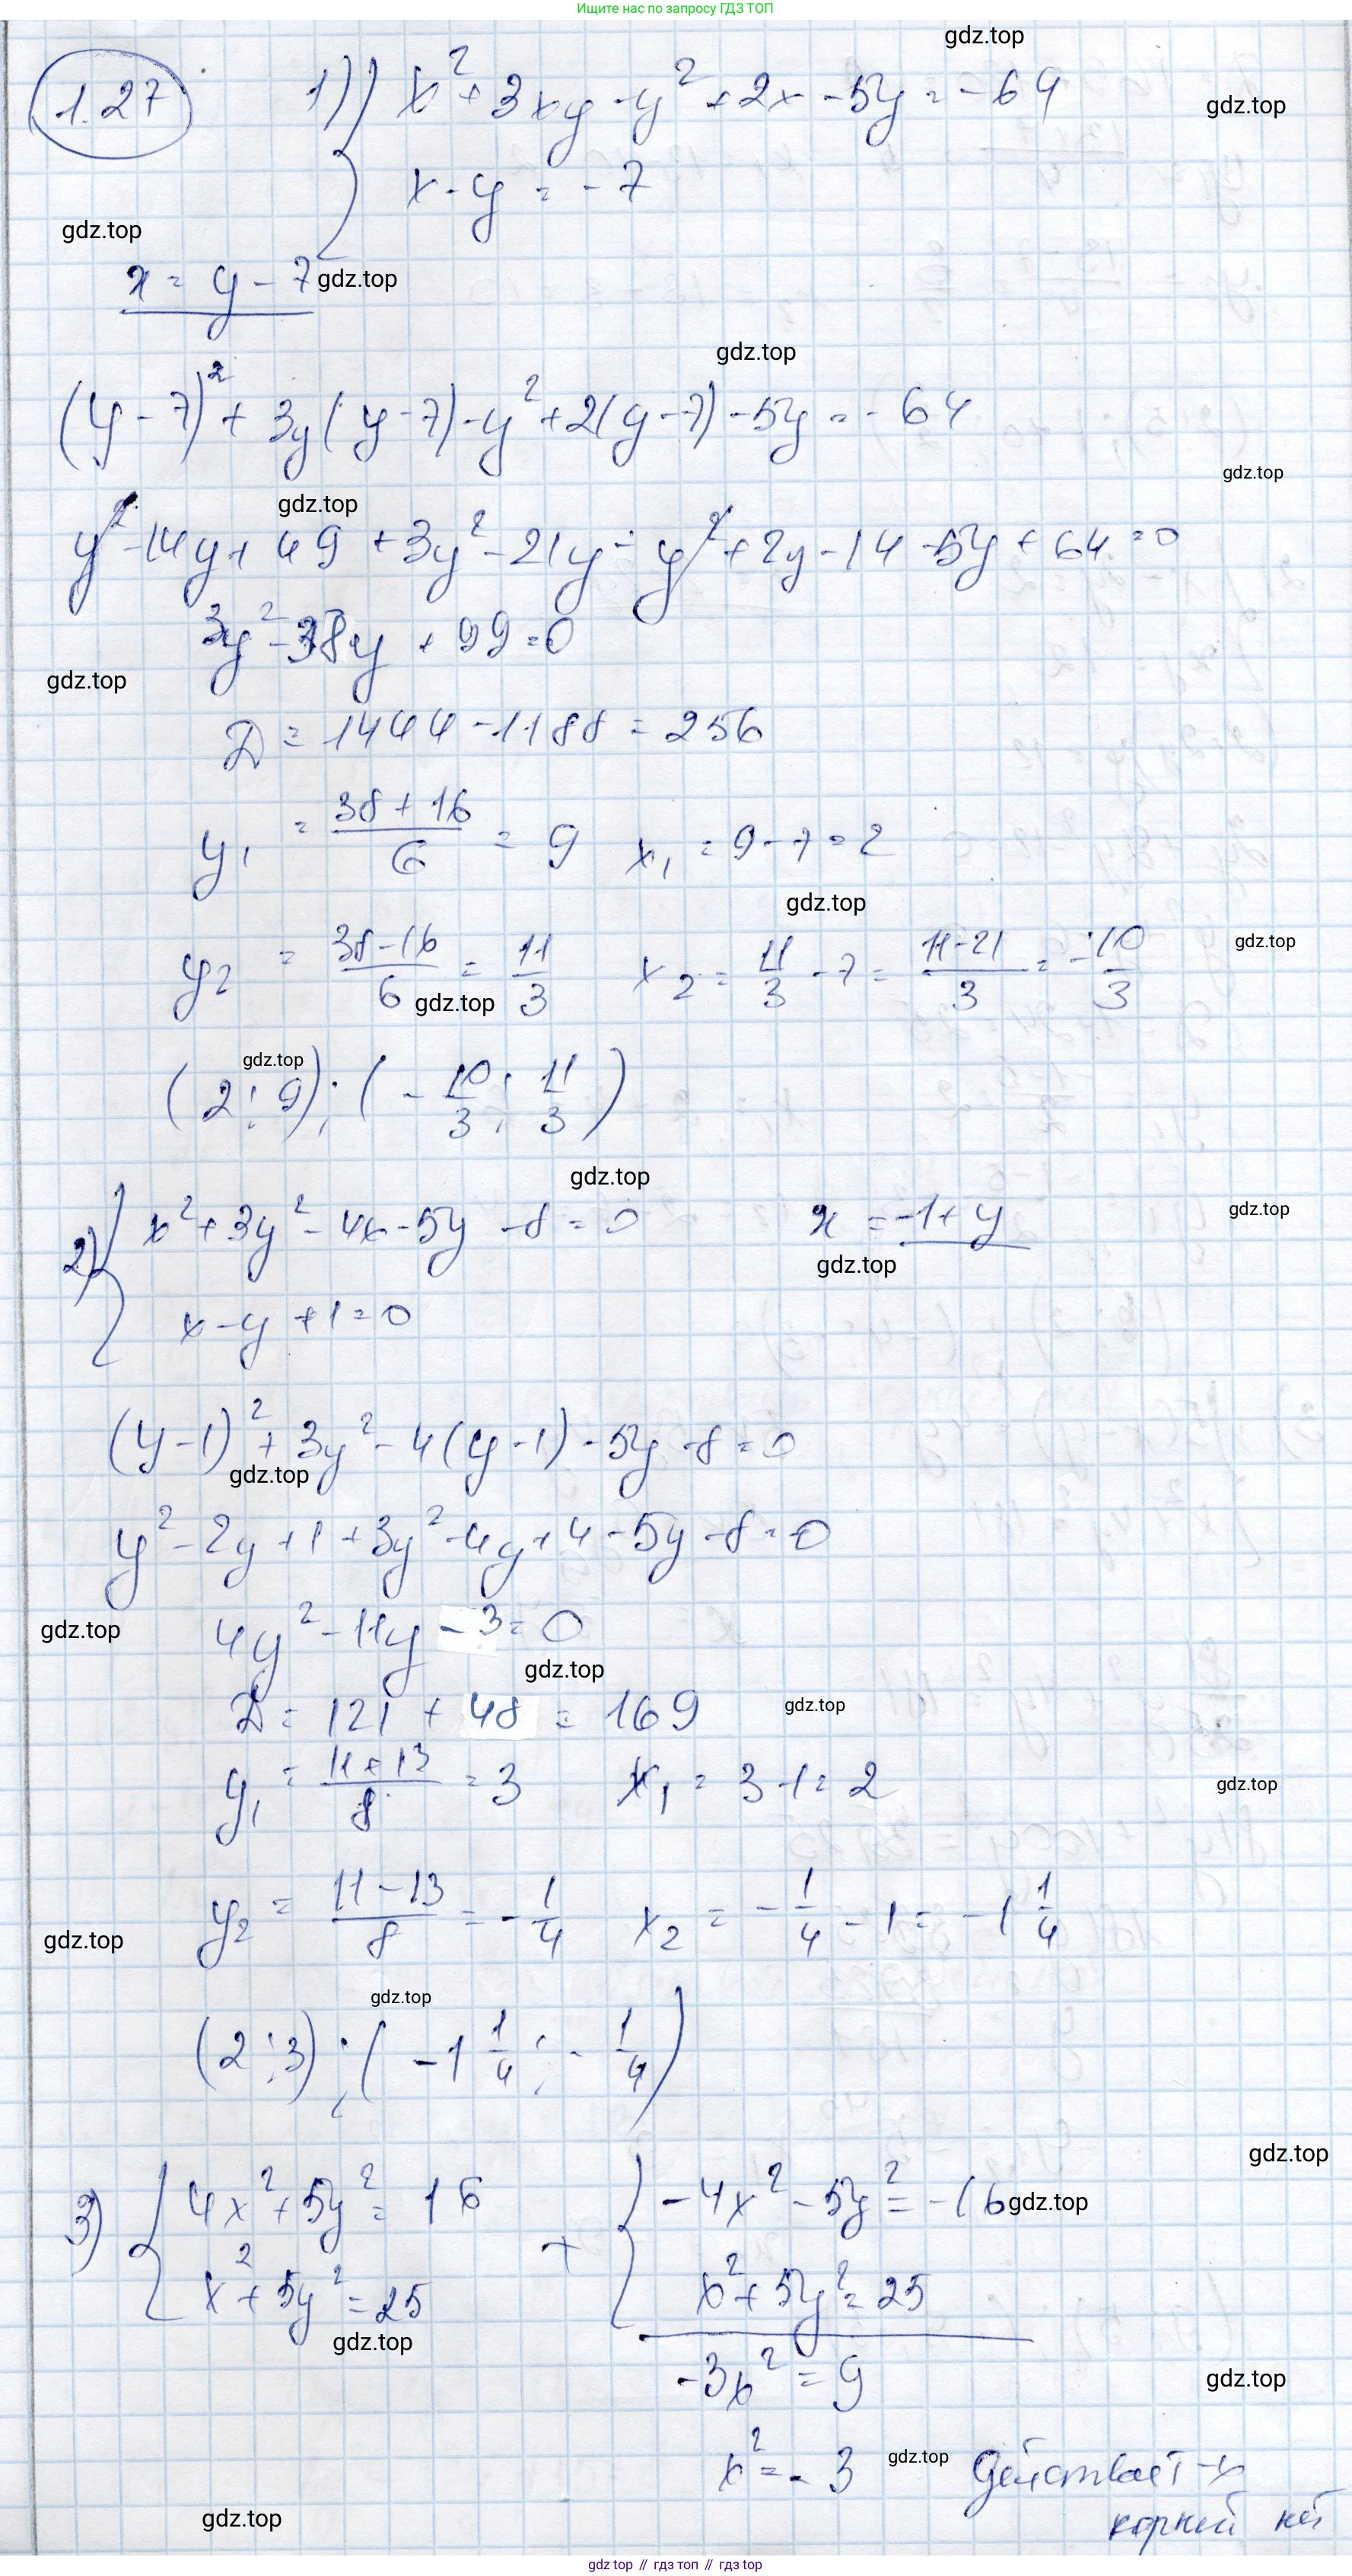 Ищите нас по запросу ГДЗ ТОП
gdz.top
1.27 1) { x² + 3xy - y² + 2x - 5y = -64
gdz.top
x - y = -7
gdz.top
x = y - 7
gdz.top
gdz.top
(y - 7)² + 3y(y - 7) - y² + 2(y - 7) - 5y = -64
gdz.top
gdz.top
y² - 14y + 49 + 3y² - 21y - y² + 2y - 14 - 5y + 64 = 0
3y² - 38y + 99 = 0
gdz.top
D = 1444 - 1188 = 256
y₁ = (38 + 16)/6 = 9 x₁ = 9 - 7 = 2
gdz.top
y₂ = (38 - 16)/6 = 11/3 x₂ = 11/3 - 7 = (11 - 21)/3 = -10/3
gdz.top
gdz.top
gdz.top
(2; 9); (-10/3; 11/3)
gdz.top
2) { x² + 3y² - 4x - 5y - 8 = 0 x = -1 + y
gdz.top
gdz.top
x - y + 1 = 0
(y - 1)² + 3y² - 4(y - 1) - 5y - 8 = 0
gdz.top
y² - 2y + 1 + 3y² - 4y + 4 - 5y - 8 = 0
gdz.top
4y² - 11y - 3 = 0
gdz.top
D = 121 + 48 = 169
gdz.top
y₁ = (11 + 13)/8 = 3 x₁ = 3 - 1 = 2
gdz.top
y₂ = (11 - 13)/8 = -1/4 x₂ = -1/4 - 1 = -1 1/4
gdz.top
gdz.top
(2; 3); (-1 1/4; -1/4)
gdz.top
3) { 4x² + 5y² = 16 + { -4x² - 5y² = -16
gdz.top
x² + 5y² = 25 x² + 5y² = 25
gdz.top
-3x² = 9
gdz.top
x² = -3 действит-х
gdz.top
корней нет
gdz.top
gdz top // гдз топ // gdz.top